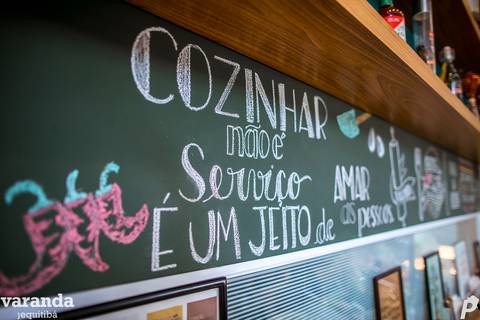 COZINHAR
não é
Serviço
É UM JEITO de
AMAR
as pessoas
varanda
jequitibá